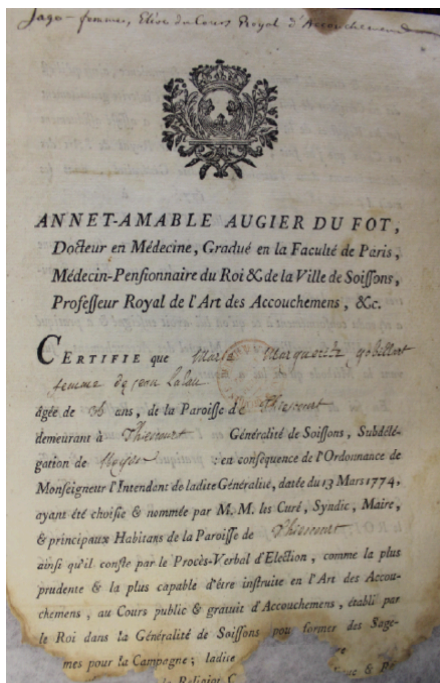 Sage-femmes, Elève du Cours Royal d'Accouchemens
ANNET-AMABLE AUGIER DU FOT,
Docteur en Médecine, Gradué en la Faculté de Paris,
Médecin-Pensionnaire du Roi & de la Ville de Soissons,
Professeur Royal de l'Art des Accouchemens, &c.
CERTIFIE que Marie Marguerite gobillart
femme de jean lalau
âgée de ans, de la Paroisse de Thiescourt
demeurant à Thiescourt Généralité de Soissons, Subdélé-
gation de Noyon : en conséquence de l'Ordonnance de
Monseigneur l'Intendant de ladite Généralité, datée du 13 Mars 1774,
ayant été choisie & nommée par M. M. les Curé, Syndic, Maire,
& principaux Habitans de la Paroisse de Thiescourt
ainsi qu'il conste par le Procès-Verbal d'Election, comme la plus
prudente & la plus capable d'être instruite en l'Art des Accou-
chemens, au Cours public & gratuit d'Accouchemens, établi par
le Roi dans la Généralité de Soissons pour former des Sage-
mes pour la Campagne; ladite
la Religion C